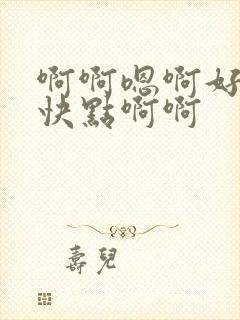 啊啊嗯啊好
快點啊啊
壽兒